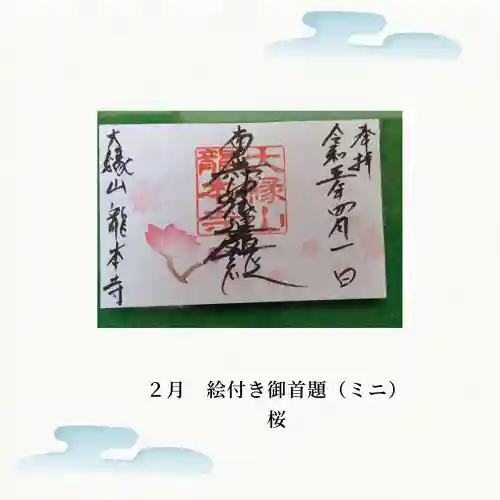 奉拝
令和五年四月一日
南無妙法蓮華経
大縁山
龍本寺
大縁山 龍本寺
２月　絵付き御首題（ミニ）
桜